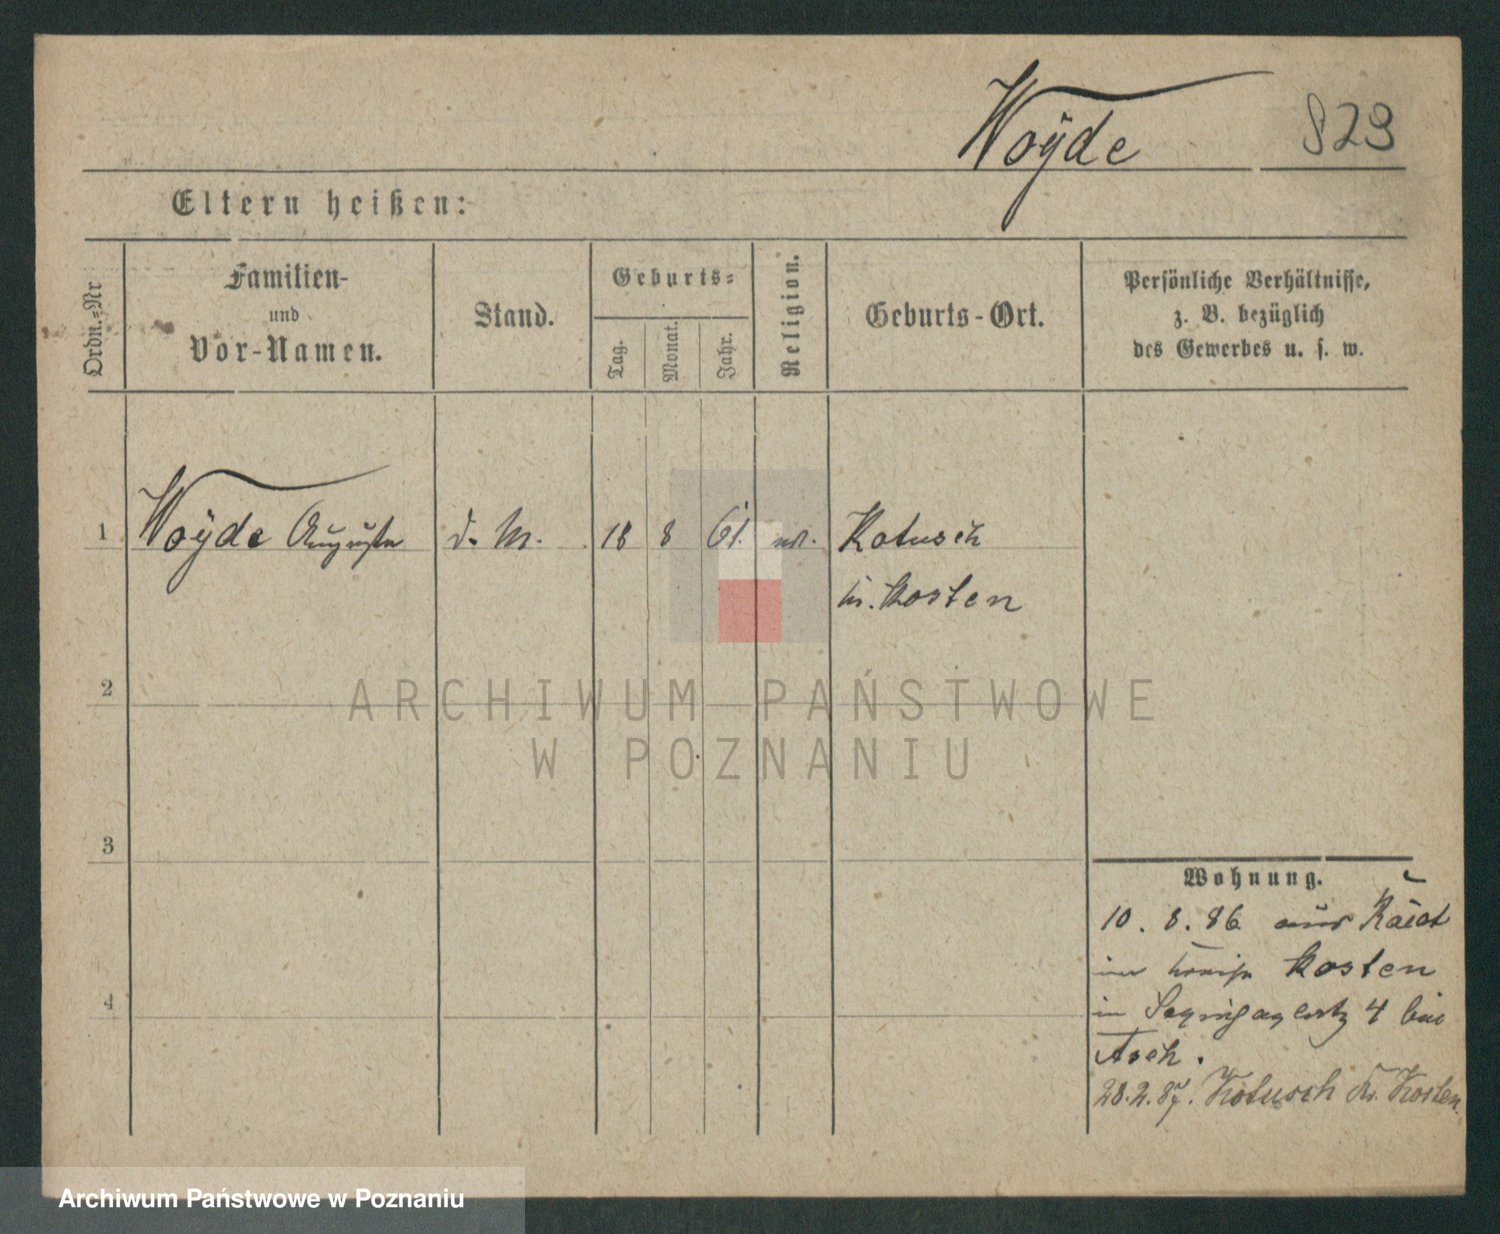 Woÿde 823
Eltern heißen:
Ordn.=Nr
Familien-
und
Vor-Namen.
Stand.
Geburts=
Tag.
Monat.
Jahr.
Religion.
Geburts-Ort.
Persönliche Verhältnisse,
z. B. bezüglich
des Gewerbes u. s. w.
1 Woÿde Auguste d. M. 18 8 61. Kotusch
Kr. Kosten
2
3
4
Wohnung.
10. 8. 86 aus
im Kreise Kosten
in 4 bei
Asch.
28.2.87. Kotusch Kr. Kosten.
ARCHIWUM PAŃSTWOWE
W POZNANIU
Archiwum Państwowe w Poznaniu